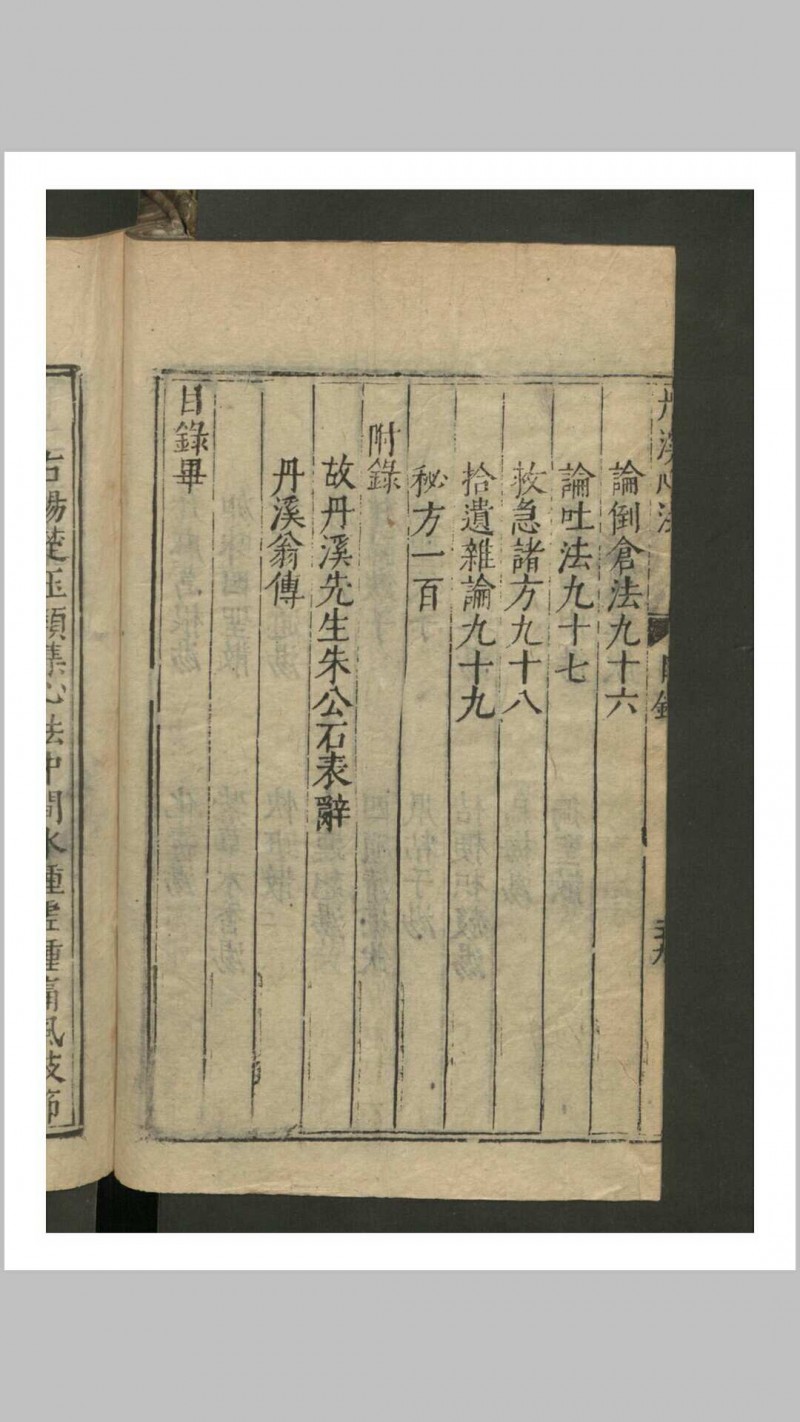 丹溪心法 目錄
論倒倉法九十六
論吐法九十七
救急諸方九十八
拾遺雜論九十九
秘方一百
附錄
故丹溪先生朱公石表辭
丹溪翁傳
目錄畢
心法中間水腫虛腫痛風肢節